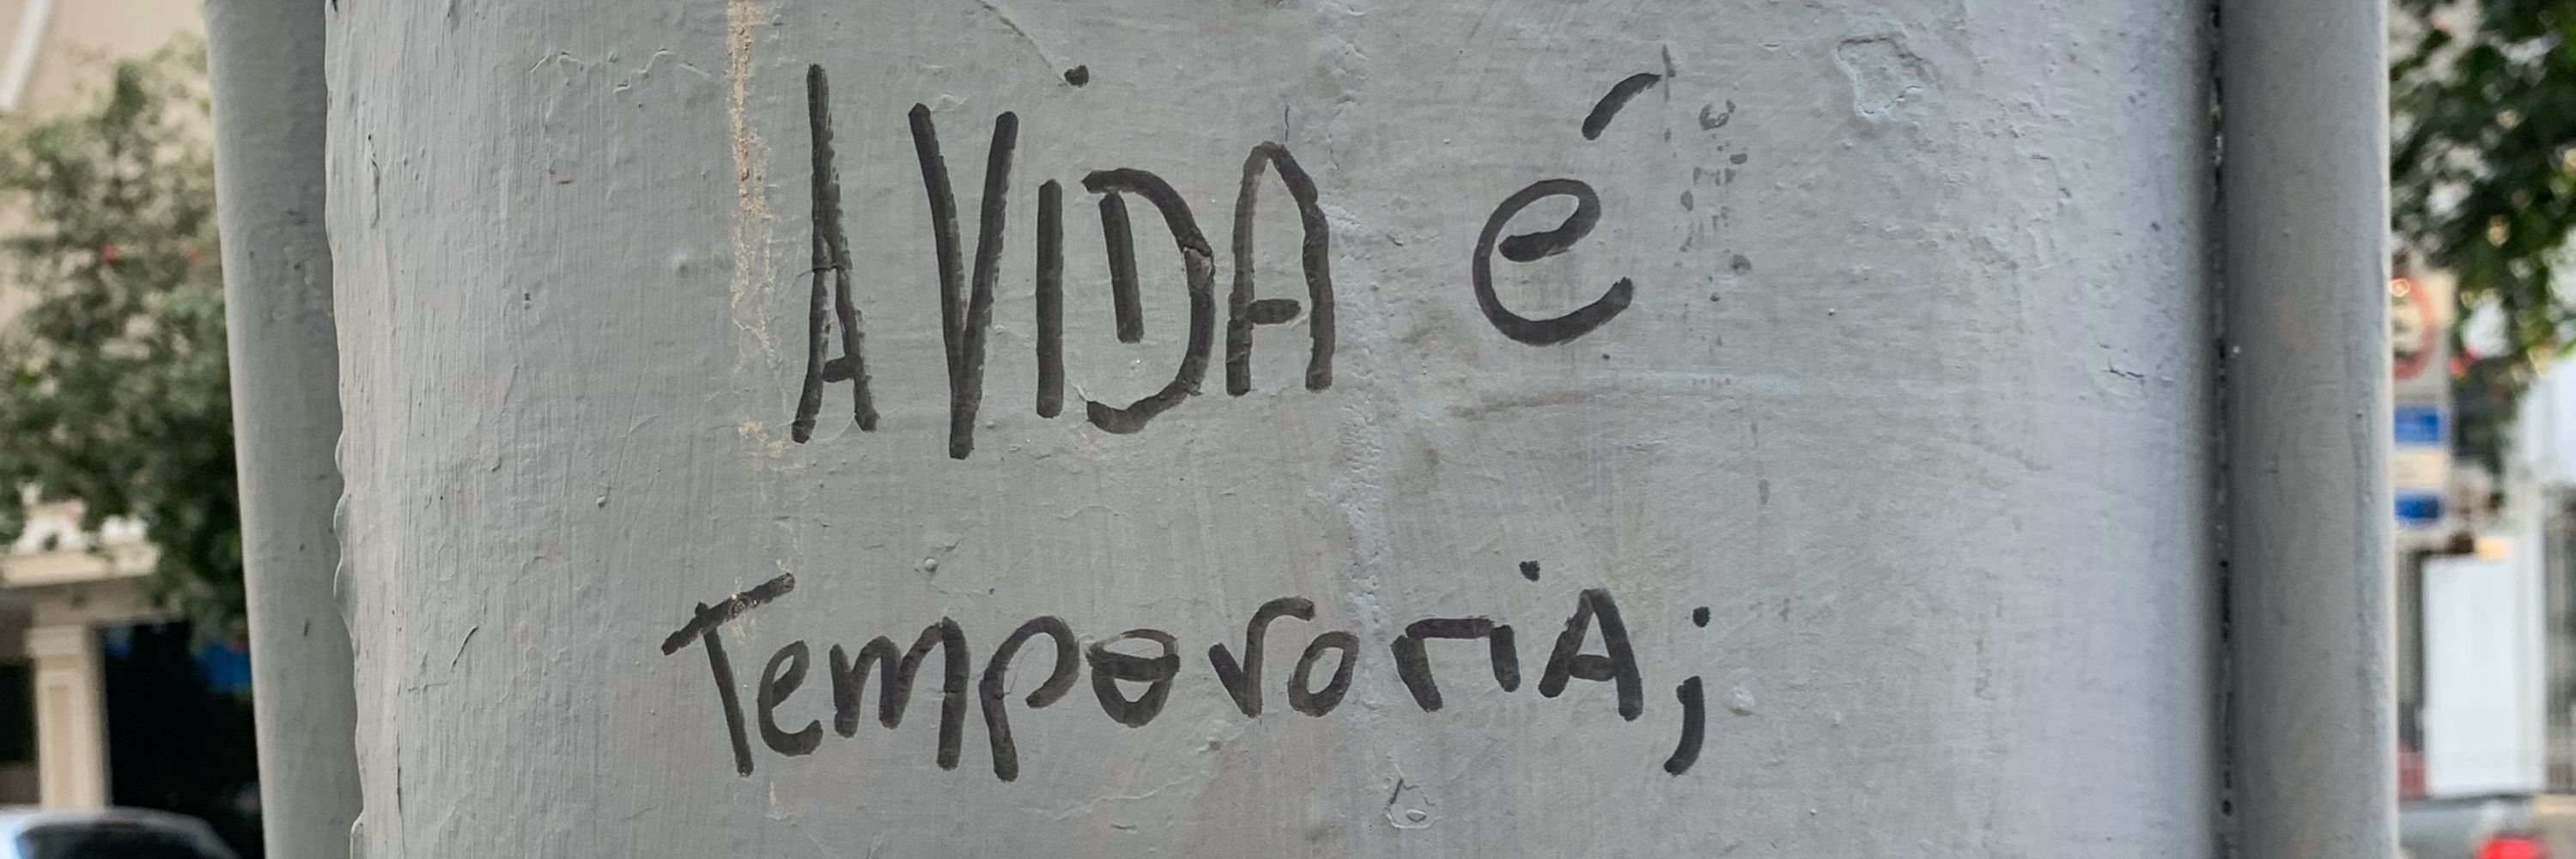 A VIDA é
TempororiA;